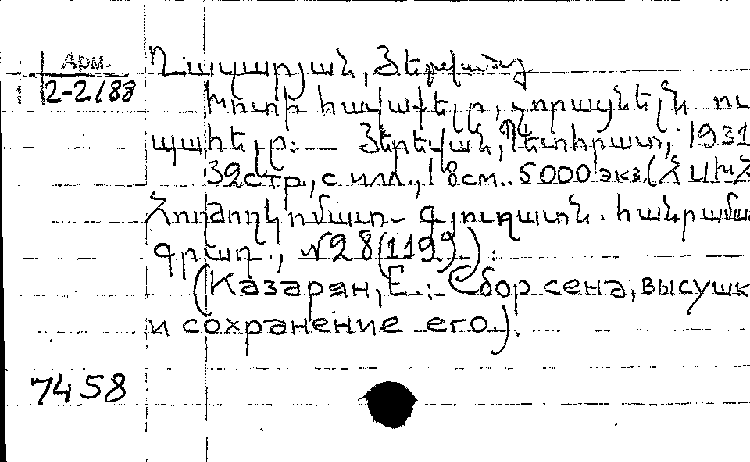 Арм.
2-2188
Ղազարյան, Յերվանդ
Խոտի հավաքելը, չորացնելն ու
պահելը: — Յերեվան, Պետհրատ, 1931
32стр., с илл., 18см. 5000 экз. (ՀՍԽՀ
Հողժողկոմատ- գյուղատնտ. հանրամատչ
գրադ., №28(1199):
(Казарян, Е.: Сбор сена, высушк
и сохранение его).
7458